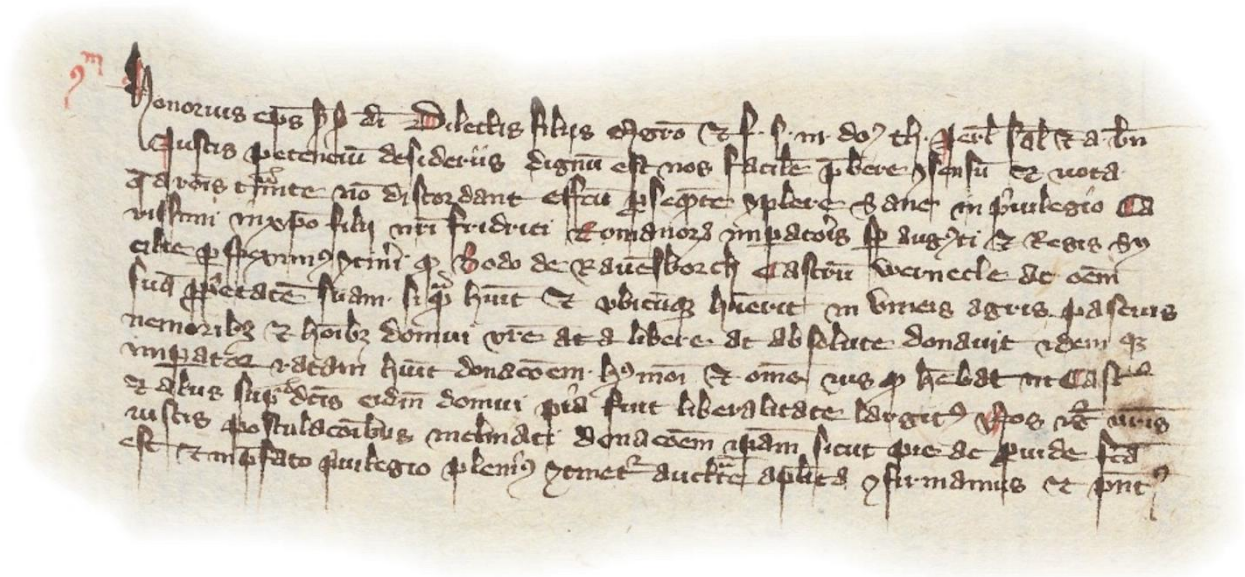 Honorius ep̄s ẜ ẜ di Dilectis filijs Mgr̄o Et f. s. m. doꝰ th. Jer̄l sal̄ Et a. bn̄
Iustis petenciū desiderijs dignū est nos facile p̄bere ꝯsensū Et uota
q̄ a rōis tͣmite nō discordant effcū ꝓseq̄nte ꝯplere Sane in p̄uilegio Ca
rissimi in xp̄o filij nr̄i fridrici Romanoꝝ imꝑatōis sp̄ augꝰti Et Regis Sy
cilie ꝑspeximꝰ ꝯtin̄i ꝙ Bodo de Rauēsborch Castrū wernecke ac oēm
suā ꝓp̄etatē suam si q̄ hūit Et vbicūqꝫ hūerit in vineis agris pascuis
nemoribꝫ Et hoībꝫ domui vr̄e at a libere ac absolute donauit idem qꝫ
imꝑator ratam hūit donacōem hꝰmoi Et om̄e ius ꝙ hēbat in Castͦ
Et alijs supͣdc̄is eidm̄ domui p̄ia fuit liberalitate largitꝰ Nos igͭ ur̄is
iustis postulacōibus inclinati donacōem ip̄am sicut pie ac ꝓuide fc̄a
est Et in p̄fato p̄uilegio pleniꝰ ꝯtinetᷣ auctͭe ap̄lica ꝯfirmamus Et p̄nt